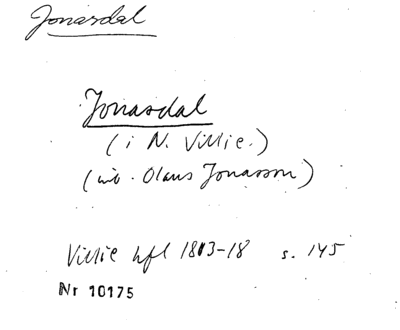 Jonasdal
Jonasdal
(i N. Villie.)
(inb. Olaus Jonasson)
Villie hfl 1813-18 s. 145
Nr 10175